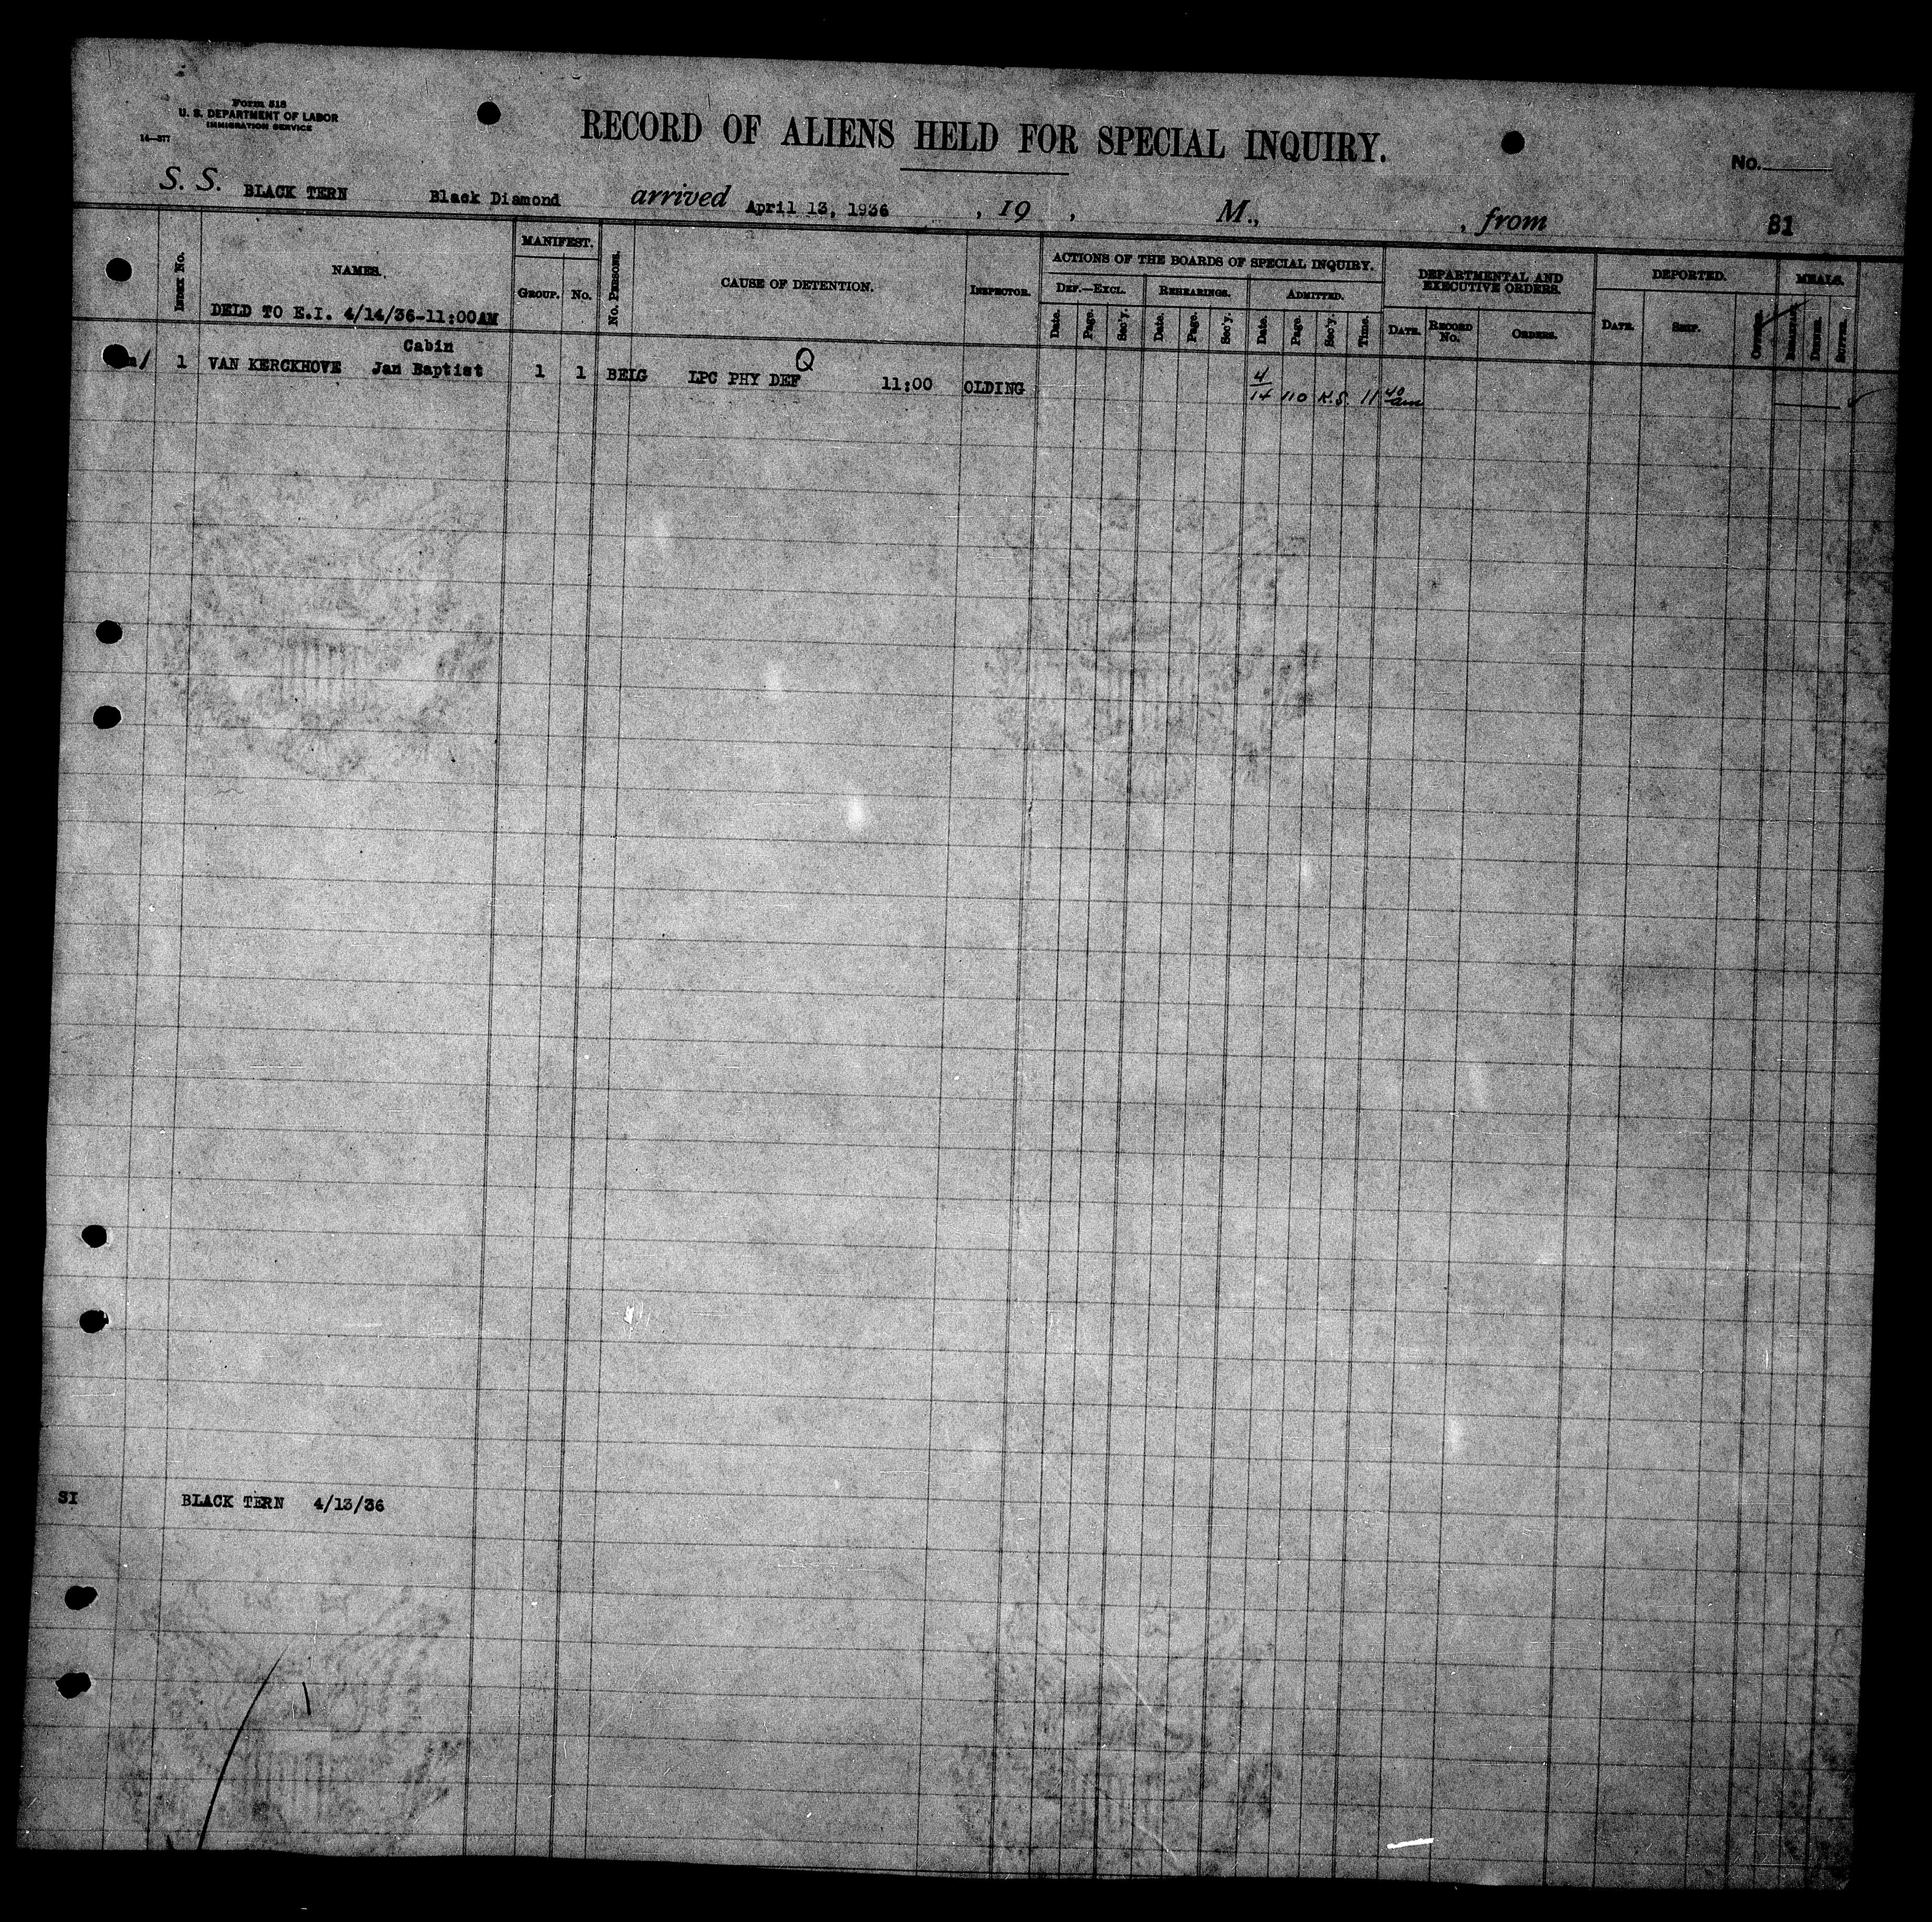 Form 518
U. S. DEPARTMENT OF LABOR
IMMIGRATION SERVICE
14—377
RECORD OF ALIENS HELD FOR SPECIAL INQUIRY.
No.
S. S. BLACK TERN Black Diamond arrived April 13, 1936 , 19 , M., , from 81
Index No. NAMES. MANIFEST. Group. No. No. Persons. CAUSE OF DETENTION. Inspector.
ACTIONS OF THE BOARDS OF SPECIAL INQUIRY.
Def.—Excl. Rehearings. Admitted.
Date. Page. Sec'y. Date. Page. Sec'y. Date. Page. Sec'y. Time.
DEPARTMENTAL AND EXECUTIVE ORDERS.
Date. Record No. Orders.
DEPORTED.
Date. Ship. Officer.
MEALS.
Breakfast. Dinner. Supper.
DELD TO E.I. 4/14/36-11:00AM
Cabin
1 VAN KERCKHOVE Jan Baptist 1 1 BELG LPC PHY DEF Q 11:00 OLDING 4/14 110 K.S. 11 40 am
SI BLACK TERN 4/13/36